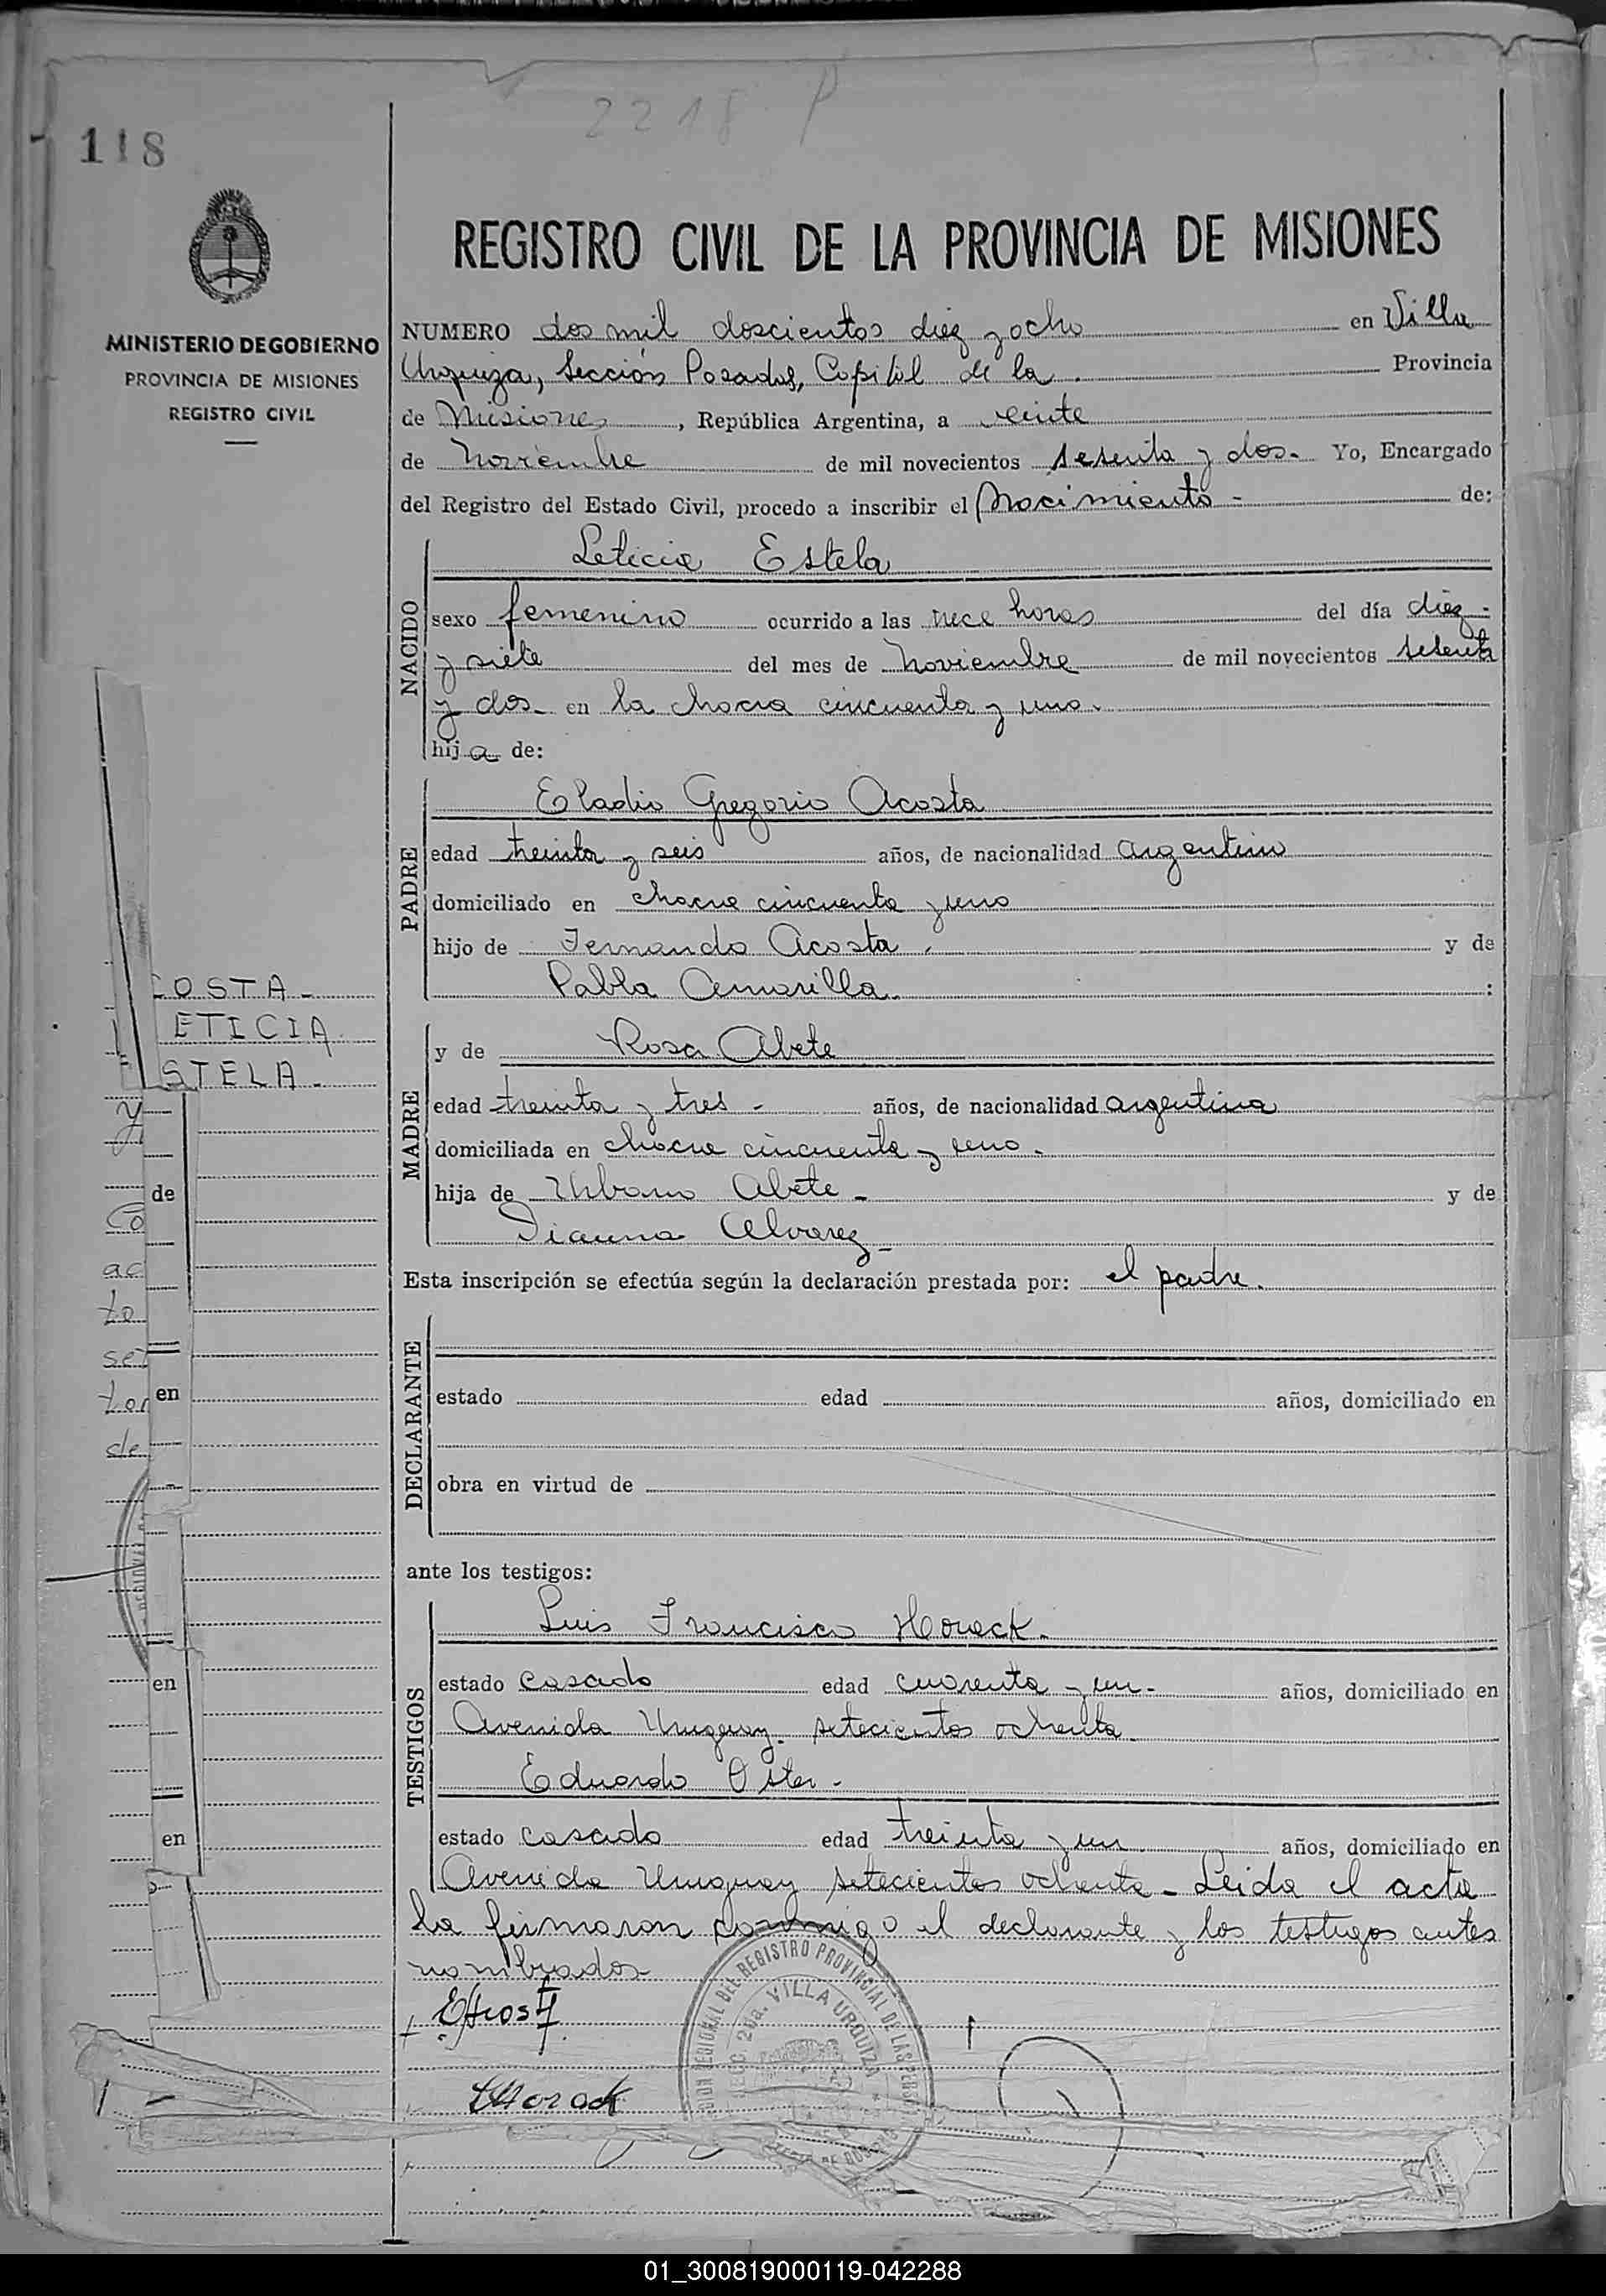 2218 P
118
REGISTRO CIVIL DE LA PROVINCIA DE MISIONES
MINISTERIO DE GOBIERNO
PROVINCIA DE MISIONES
REGISTRO CIVIL
NUMERO dos mil doscientos diez y ocho en Villa
Urquiza, Sección Posadas, Capital de la Provincia
de Misiones, República Argentina, a veinte
de Noviembre de mil novecientos setenta y dos. Yo, Encargado
del Registro del Estado Civil, procedo a inscribir el Nacimiento - de:
NACIDO
Leticia Estela
sexo femenino ocurrido a las trece horas del día diez
y siete del mes de Noviembre de mil novecientos setenta
y dos en la chacra cincuenta y uno.
hija de:
PADRE
Eladio Gregorio Acosta
edad treinta y seis años, de nacionalidad argentino
domiciliado en chacra cincuenta y uno
hijo de Fernando Acosta y de
Pabla Amarilla :
COSTA -
ETICIA
STELA -
MADRE
y de Rosa Abete
edad treinta y tres - años, de nacionalidad argentina
domiciliada en chacra cincuenta y uno.
hija de Urbano Abete - y de
Alvarez -
y
de
Co
ac
to
set
tor en
de
en
en
Esta inscripción se efectúa según la declaración prestada por: el padre.
DECLARANTE
estado edad años, domiciliado en
obra en virtud de
ante los testigos:
TESTIGOS
Luis Francisco Horack.
estado casado edad cuarenta y un - años, domiciliado en
Avenida Uruguay setecientos ochenta
Eduardo Oster -
estado casado edad treinta y un años, domiciliado en
Avenida Uruguay setecientos ochenta - Leida el acta
la firmaron conmigo el declarante y los testigos antes
nombrados
REGIONAL DEL REGISTRO PROVINCIAL DE LAS PERS
SECC. 2da. VILLA URQUIZA
Horack
01_300819000119-042288